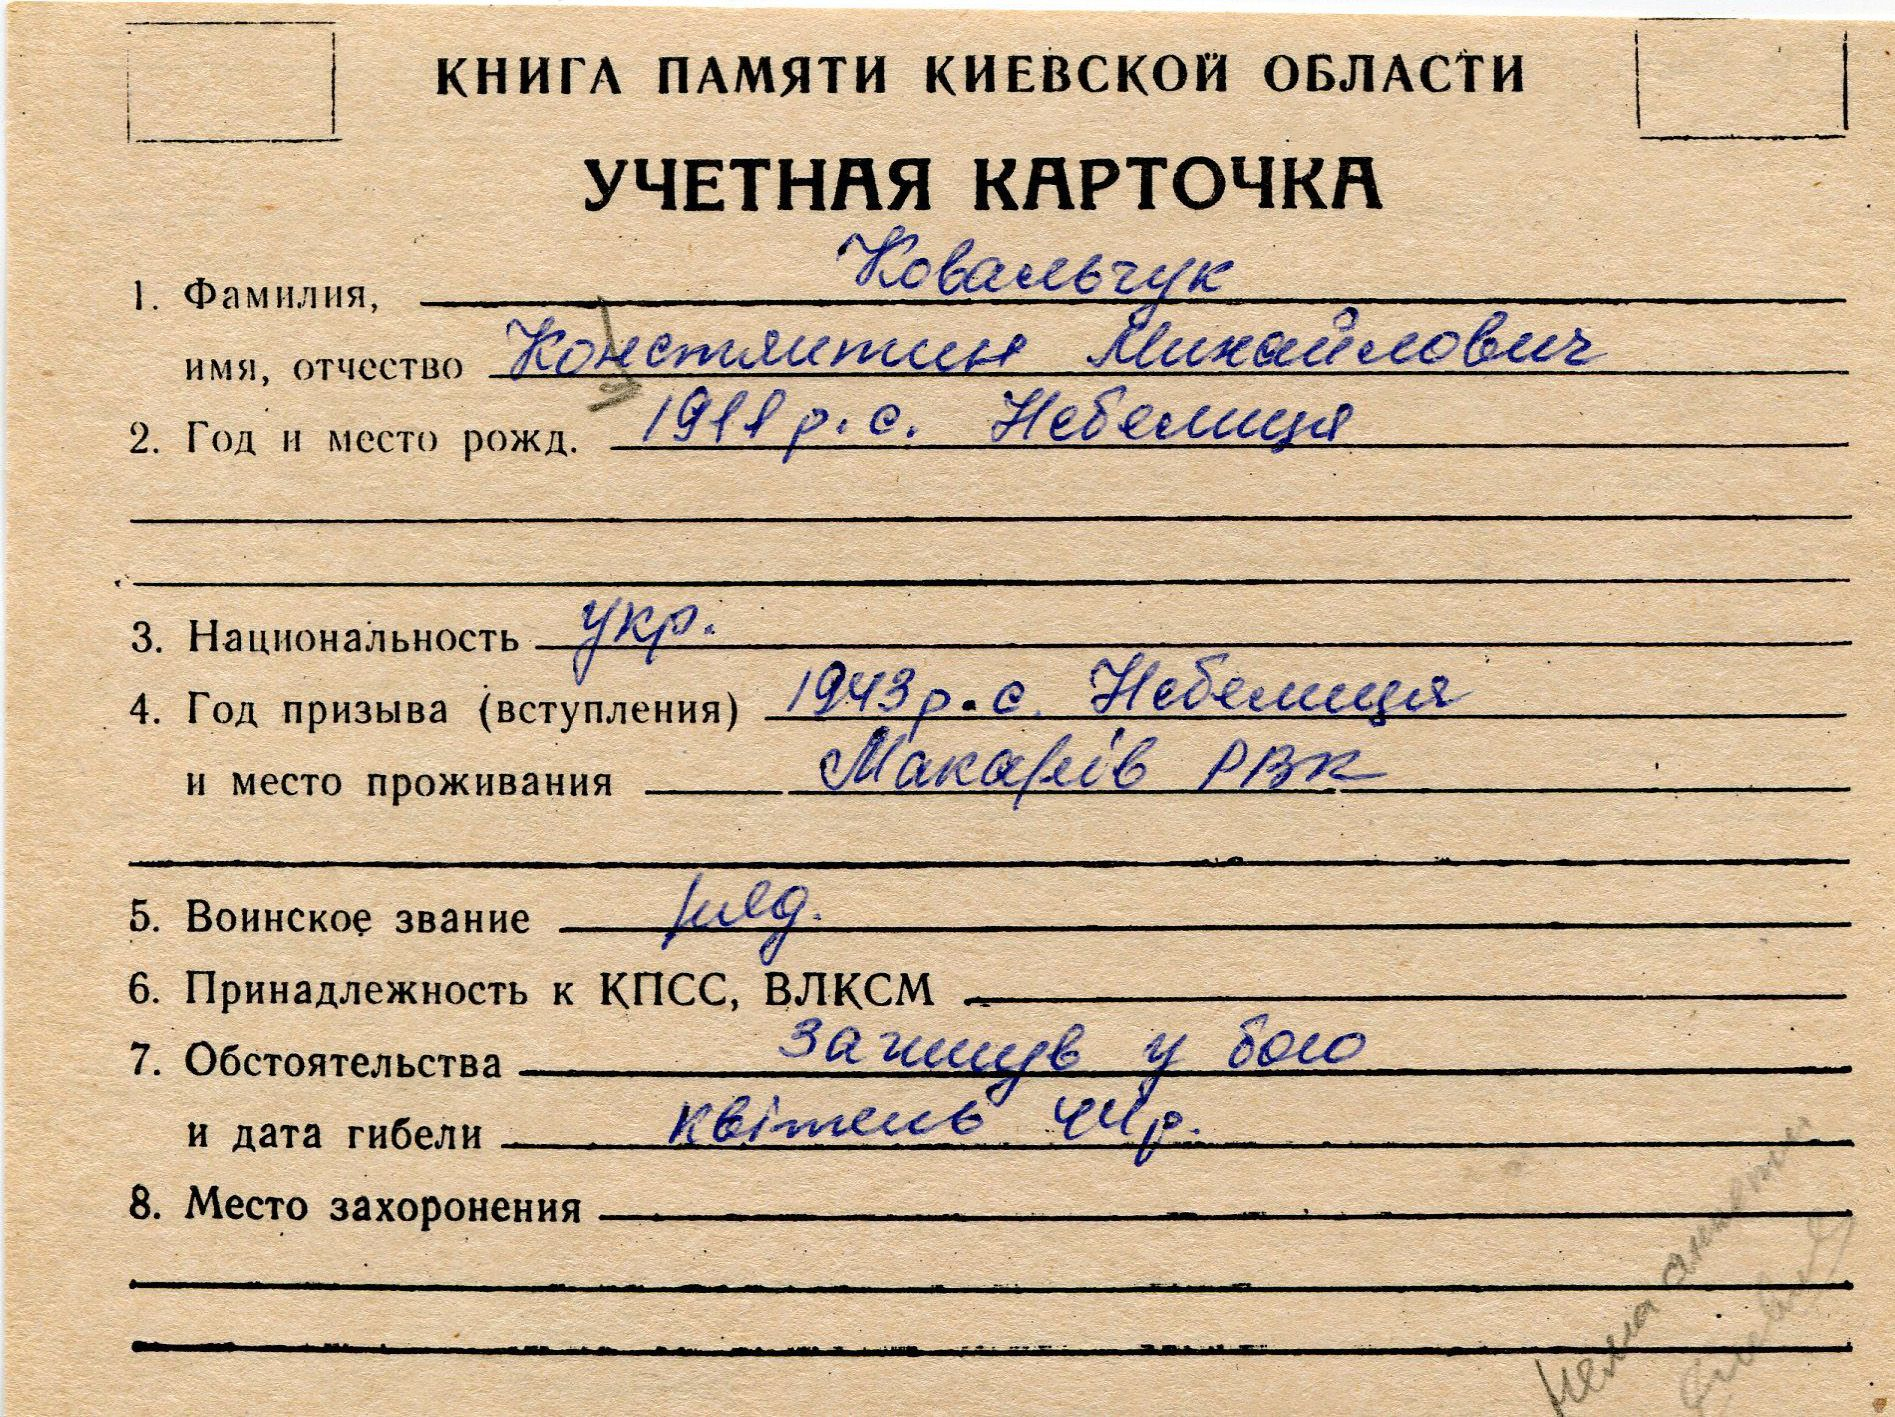 КНИГА ПАМЯТИ КИЕВСКОЙ ОБЛАСТИ
УЧЕТНАЯ КАРТОЧКА
1. Фамилия, Ковальчук
имя, отчество Констянтин Михайлович
2. Год и место рожд. 1911 р. с. Небелиця
3. Национальность укр.
4. Год призыва (вступления) 1943 р. с. Небелиця
и место проживания Макарів РВК
5. Воинское звание
6. Принадлежность к КПСС, ВЛКСМ
7. Обстоятельства загинув у бою
и дата гибели квітень 44 р.
8. Место захоронения
нема анкети